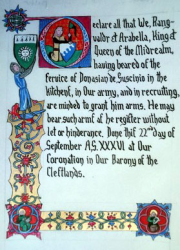 eclare all that We, Rang-
valdr & Arabella, King &
Queen of the Midrealm,
having heared of the
service of Donasian de Suscinis in
the kitchens, in Our army, and in recruiting,
are minded to grant him arms. He may
bear such arms as he register without
let or hinderance. Done this 22nd day of
September A.S. XXXVI at Our
Coronation in Our Barony of the
Clefftlands.